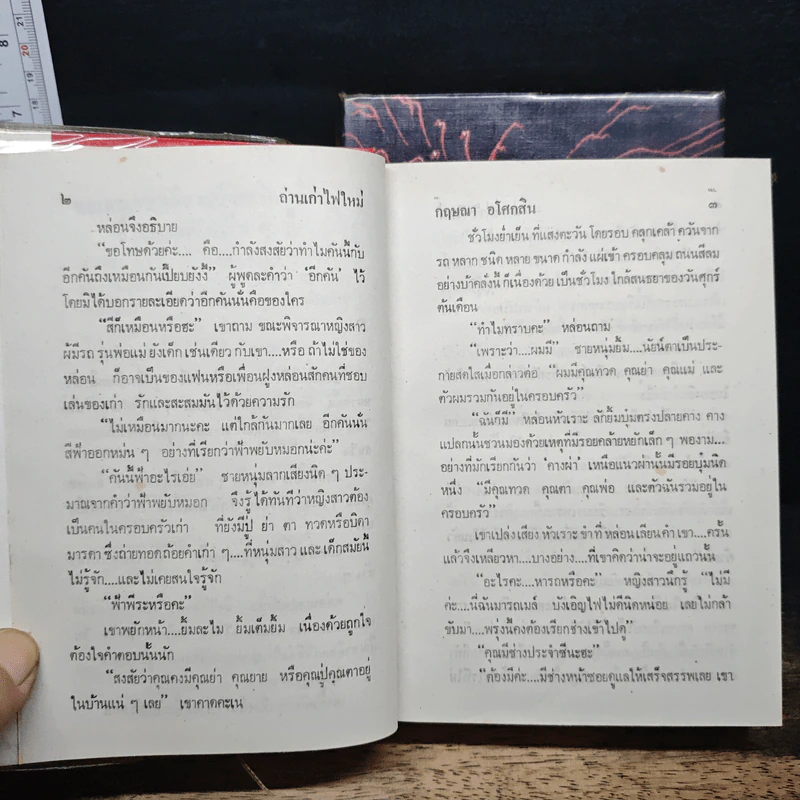 ๒ ถ่านเก่าไฟใหม่
หล่อนจึงอธิบาย
“ขอโทษด้วยค่ะ.... คือ....กำลังสงสัยว่าทำไมคันนี้กับ
อีกคันถึงเหมือนกันเปี๊ยบยังงี้” ผู้พูดละคำว่า ‘อีกคัน’ ไว้
โดยมิได้บอกรายละเอียดว่าอีกคันนั่นคือของใคร
“สีก็เหมือนหรือฮะ” เขาถาม ขณะพิจารณาหญิงสาว
ผู้มีรถ รุ่นพ่อแม่ ยังเด็ก เช่นเดียว กับเขา....หรือ ถ้า ไม่ใช่ของ
หล่อน ก็อาจเป็นของแฟนหรือเพื่อนฝูงหล่อนสักคนที่ชอบ
เล่นของเก่า รักและสะสมมันไว้ด้วยความรัก
“ไม่เหมือนมากนะคะ แต่ใกล้กันมากเลย อีกคันนั่น
สีฟ้าออกหม่น ๆ อย่างที่เรียกว่าฟ้าพยับหมอกน่ะค่ะ”
“คันนี้ฟ้าอะไรเอ่ย” ชายหนุ่มลากเสียงนิด ๆ ประ-
มาณจากคำว่าฟ้าพยับหมอก จึงรู้ ได้ทันทีว่าหญิงสาวต้อง
เป็นคนในครอบครัวเก่า ที่ยังมีปู่ ย่า ตา ทวดหรือบิดา
มารดา ซึ่งถ่ายทอดถ้อยคำเก่า ๆ....ที่หนุ่มสาว และเด็กสมัยนี้
ไม่รู้จัก....และไม่เคยสนใจรู้จัก
“ฟ้าพีระหรือคะ”
เขาพยักหน้า....ยิ้มละไม ยิ้มเต็มยิ้ม เนื่องด้วยถูกใจ
ต้องใจคำตอบนั้นนัก
“สงสัยว่าคุณคงมีคุณย่า คุณยาย หรือคุณปู่คุณตาอยู่
ในบ้านแน่ ๆ เลย” เขาคาดคะเน
กฤษณา อโศกสิน ๓
ชั่วโมงย่ำเย็น ที่แสงตะวัน โดยรอบ คลุกเคล้า ควันจาก
รถ หลาก ชนิด หลาย ขนาด กำลัง แผ่เข้า ครอบคลุม ถนนสีลม
อย่างบ้าคลั่งนี้ ก็เนื่องด้วย เป็นชั่วโมง ใกล้สนธยาของวันศุกร์
ต้นเดือน
“ทำไมทราบคะ” หล่อนถาม
“เพราะว่า....ผมมี” ชายหนุ่มยิ้ม....นัยน์ตาเป็นประ-
กายสดใสเมื่อกล่าวต่อ “ผมมีคุณทวด คุณย่า คุณแม่ และ
ตัวผมรวมกันอยู่ในครอบครัว”
“ฉันก็มี” หล่อนหัวเราะ ลักยิ้มบุ๋มตรงปลายคาง คาง
แปลกนั้นชวนมองด้วยเหตุที่มีรอยคล้ายหยักเล็ก ๆ พองาม...
อย่างที่มักเรียกกันว่า ‘คางผ่า’ เหนือแนวผ่านั้นมีรอยบุ๋มนิด
หนึ่ง “มีคุณทวด คุณตา คุณพ่อ และตัวฉันรวมอยู่ใน
ครอบครัว”
เขาเปล่งเสียง หัวเราะ ขำที่ หล่อนเลียนคำ เขา....ครั้น
แล้วจึงเหลียวหา....บางอย่าง....ที่เขาคิดว่าน่าจะอยู่แถวนั้น
“อะไรคะ....หารถหรือคะ” หญิงสาวนึกรู้ “ไม่มี
ค่ะ....นี่ฉันมารถเมล์ บังเอิญไฟไม่ดีนิดหน่อย เลยไม่กล้า
ขับมา....พรุ่งนี้คงต้องเรียกช่างเข้าไปดู”
“คุณมีช่างประจำซีนะฮะ”
“ต้องมีค่ะ....มีช่างหน้าซอยดูแลให้เสร็จสรรพเลย เขา